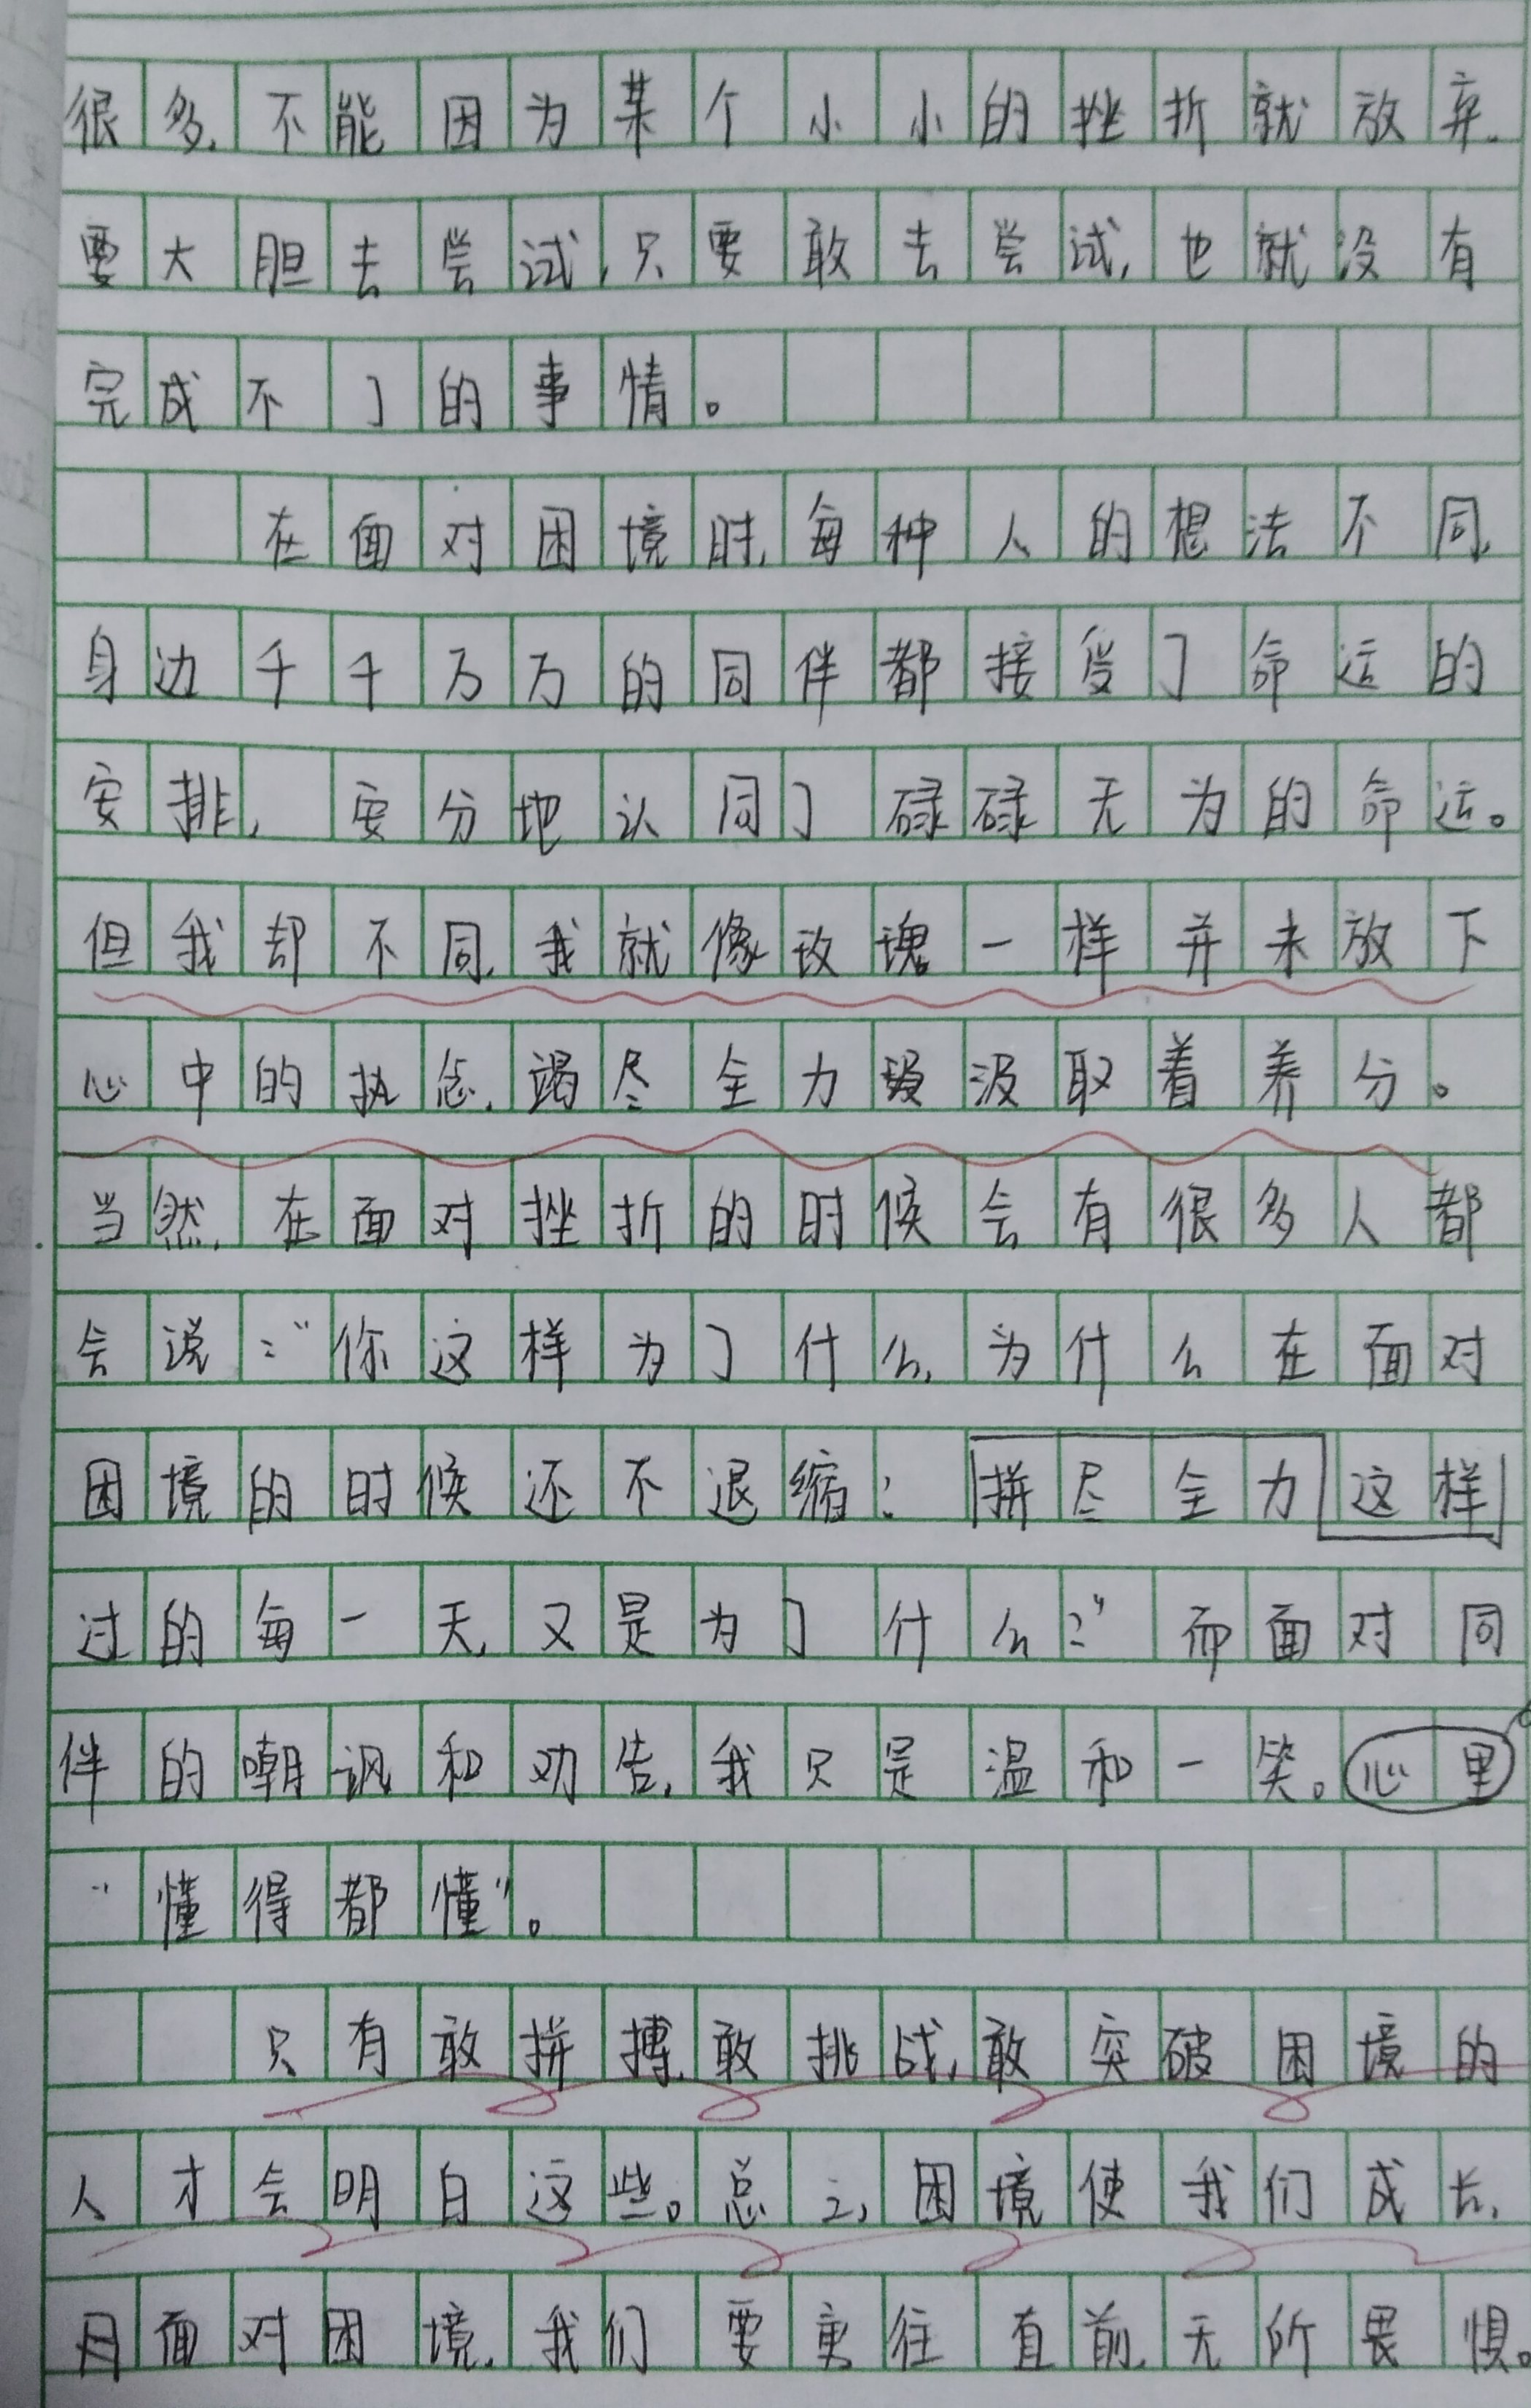 很多,不能因为某个小小的挫折就放弃.
要大胆去尝试,只要敢去尝试,也就没有
完成不了的事情。
在面对困境时,每种人的想法不同,
身边千千万万的同伴都接受了命运的
安排,安分地认同了碌碌无为的命运。
但我却不同,我就像玫瑰一样并未放下
心中的执念,竭尽全力汲取着养分。
当然,在面对挫折的时候会有很多人都
会说:“你这样为了什么,为什么在面对
困境的时候还不退缩?拼尽全力这样
过的每一天,又是为了什么?”而面对同
伴的嘲讽和劝告,我只是温和一笑。心里
“懂得都懂”。
只有敢拼搏,敢挑战,敢突破困境的
人才会明白这些。总之,困境使我们成长,
面对困境,我们要勇往直前,无所畏惧。